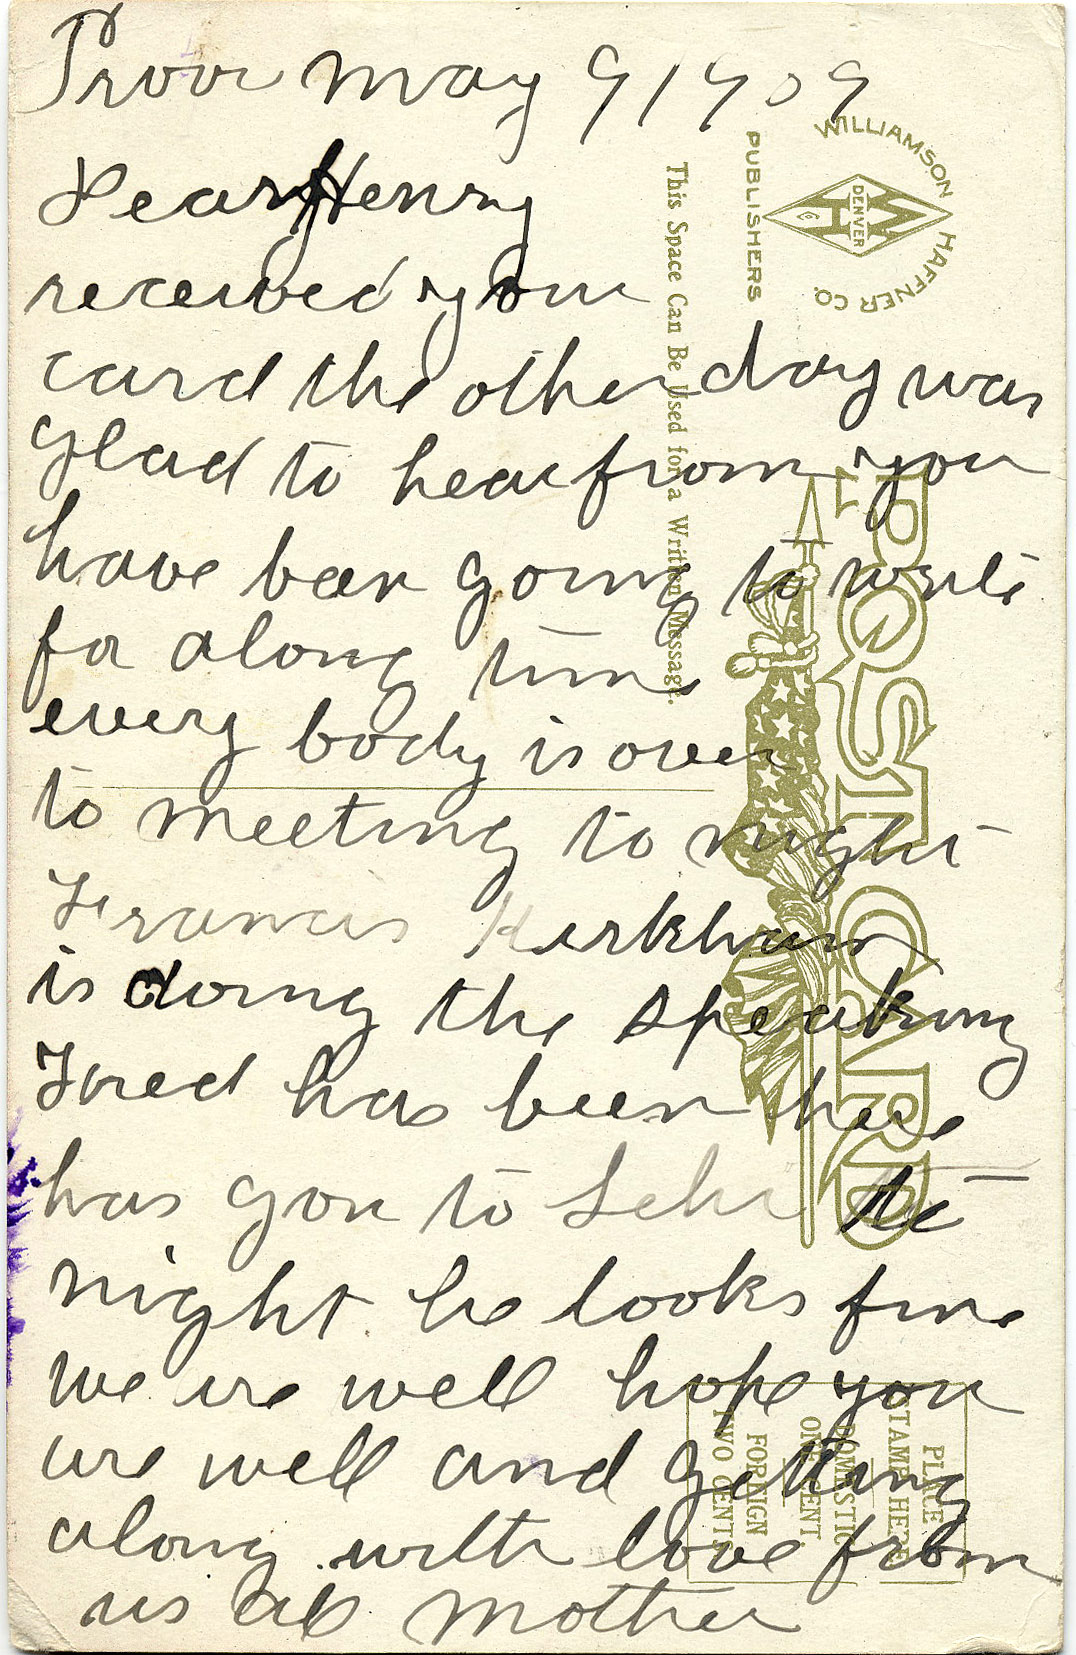 Provo May 9 1909
Dear Henry
received your
card the other day was
glad to hear from you
have been going to write
for along time
every body is over
to meeting to night
Francis Kirkham
is doing the speaking
Fred has been here
has gon to Lehi to
night he looks fine
we are well hope you
are well and getting
along with love from
us all Mother
WILLIAMSON HAFFNER CO.
PUBLISHERS
DENVER
This Space Can Be Used for a Written Message.
POST CARD
PLACE
STAMP HERE
DOMESTIC
ONE CENT
FOREIGN
TWO CENTS